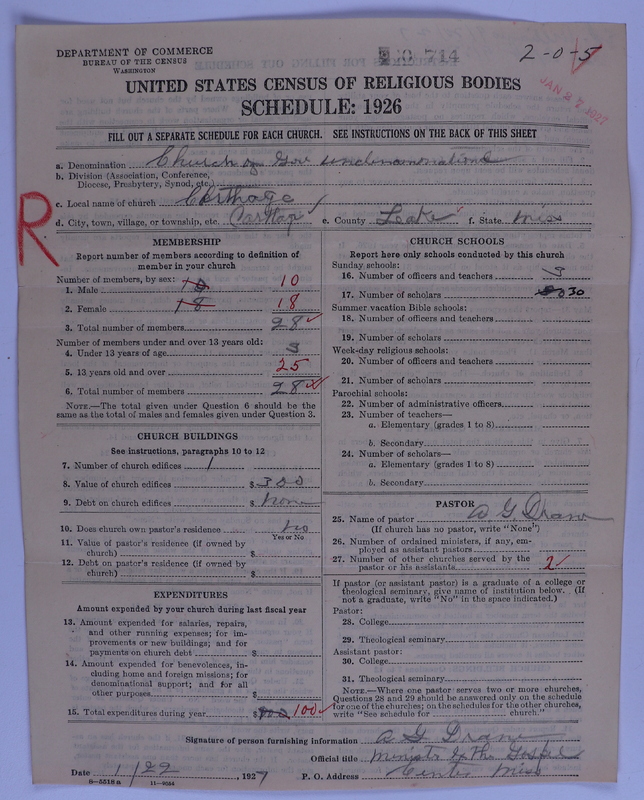 DEPARTMENT OF COMMERCE
BUREAU OF THE CENSUS
WASHINGTON
20 714
2-0-5
JAN 27 1927
UNITED STATES CENSUS OF RELIGIOUS BODIES
SCHEDULE: 1926
FILL OUT A SEPARATE SCHEDULE FOR EACH CHURCH. SEE INSTRUCTIONS ON THE BACK OF THIS SHEET
R
a. Denomination Church of God
b. Division (Association, Conference,
Diocese, Presbytery, Synod, etc.)
c. Local name of church Carthage
d. City, town, village, or township, etc. Carthage e. County Leake f. State Miss
MEMBERSHIP
Report number of members according to definition of
member in your church
Number of members, by sex:
1. Male 10
2. Female 18 18
3. Total number of members 28
Number of members under and over 13 years old:
4. Under 13 years of age 3
5. 13 years old and over 25
6. Total number of members 28
NOTE.—The total given under Question 6 should be the
same as the total of males and females given under Question 3.
CHURCH BUILDINGS
See instructions, paragraphs 10 to 12
7. Number of church edifices 1
8. Value of church edifices $300
9. Debt on church edifices $none
10. Does church own pastor's residence No
Yes or No
11. Value of pastor's residence (if owned by
church) $
12. Debt on pastor's residence (if owned by
church) $
EXPENDITURES
Amount expended by your church during last fiscal year
13. Amount expended for salaries, repairs,
and other running expenses; for im-
provements or new buildings; and for
payments on church debt $
14. Amount expended for benevolences, in-
cluding home and foreign missions; for
denominational support; and for all
other purposes $
15. Total expenditures during year $ 100
CHURCH SCHOOLS
Report here only schools conducted by this church
Sunday schools:
16. Number of officers and teachers
17. Number of scholars 30
Summer vacation Bible schools:
18. Number of officers and teachers
19. Number of scholars
Week-day religious schools:
20. Number of officers and teachers
21. Number of scholars
Parochial schools:
22. Number of administrative officers
23. Number of teachers—
a. Elementary (grades 1 to 8)
b. Secondary
24. Number of scholars—
a. Elementary (grades 1 to 8)
b. Secondary
PASTOR
25. Name of pastor G Drane
(If church has no pastor, write "None")
26. Number of ordained ministers, if any, em-
ployed as assistant pastors
27. Number of other churches served by the
pastor or his assistants 2
If pastor (or assistant pastor) is a graduate of a college or
theological seminary, give name of institution below. (If
not a graduate, write "No" in the space indicated.)
Pastor:
28. College
29. Theological seminary
Assistant pastor:
30. College
31. Theological seminary
NOTE.—Where one pastor serves two or more churches,
Questions 28 and 29 should be answered only on the schedule
for one of the churches; on the schedules for the other churches,
write "See schedule for church."
Signature of person furnishing information G Drane
Official title Ministr of the Gospel
Date 1/22, 1927 P. O. Address Center Miss
8—5518 a 11—9054